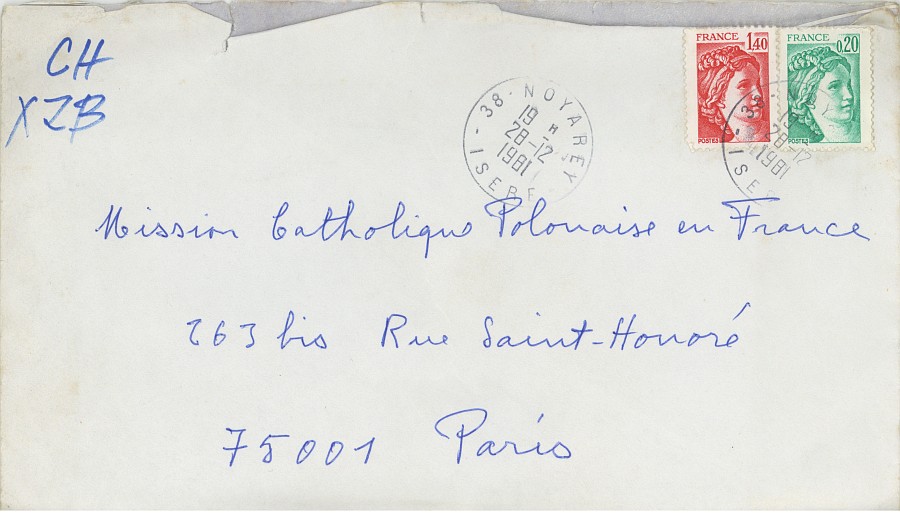 CH
XZB
FRANCE
1,40
POSTES
FRANCE
0,20
POSTES
38 - NOYAREY
19 H
28-12
1981
ISERE
38
19
28-12
1981
ISE
Mission Catholique Polonaise en France
263 bis Rue Saint-Honoré
75001 Paris